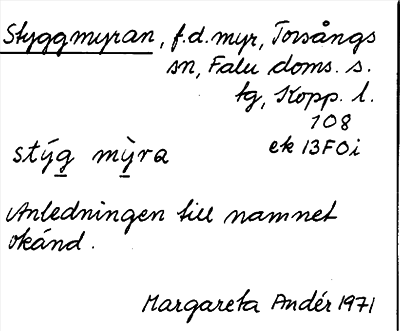 Styggmyran, f.d. myr, Torsångs
sn, Falu doms. s.
tg, Kopp. l.
108
stýg mỳra ek 13F0i
Anledningen till namnet
okänd.
Margareta Andér 1971